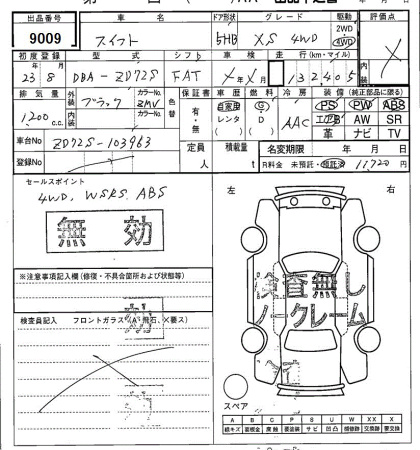 出品番号 車名 ドア形状 グレード 駆動 評価点
9009 スイフト 5HB XS 4WD 2WD 4WD
初度登録 型式 シフト 車検 走行(km・マイル)
23 8 DBA-ZD72S FAT 年 月 132405
排気量 外装 カラーNo. 色替 保証書 車歴 燃料 冷房 装備(純正部品に限る)
1200c.c. ブラック ZMV 有・無 自家用 レンタ G D AAC PS PW ABS
内装 カラーNo. エアB AW SR
革 ナビ TV
車台No ZD72S-103963 定員 人 積載量 t 名変期限 年 月 日
登録No R料金 未預託・預託済 11,720円
セールスポイント 左 右
4WD, WSRS ABS
無効
※注意事項記入欄(修復・不具合箇所および状態等)
検査無し
ノークレーム
検査員記入 フロントガラス(A・飛石、×要ス)
スペア
A B C P S U W XX X
線キズ 要板金 腐触 要塗装 サビ 凹凸 補修跡 交換跡 要交換